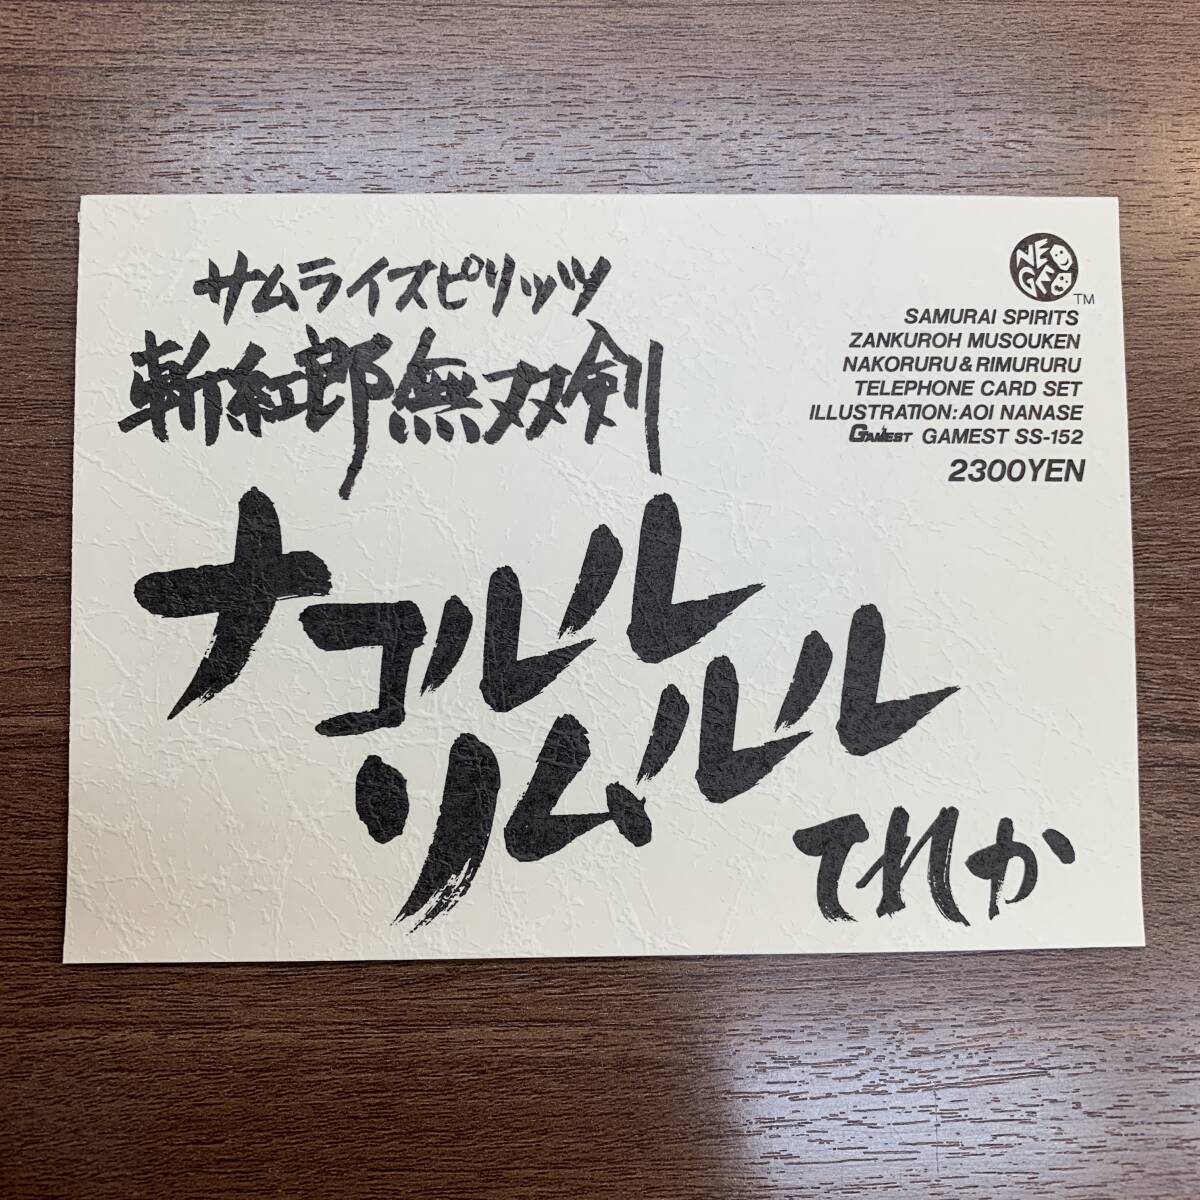 サムライスピリッツ
斬紅郎無双剣
ナコルル
リムルル
てれか
NEO
GEO
TM
SAMURAI SPIRITS
ZANKUROH MUSOUKEN
NAKORURU & RIMURURU
TELEPHONE CARD SET
ILLUSTRATION: AOI NANASE
GAMEST GAMEST SS-152
2300YEN